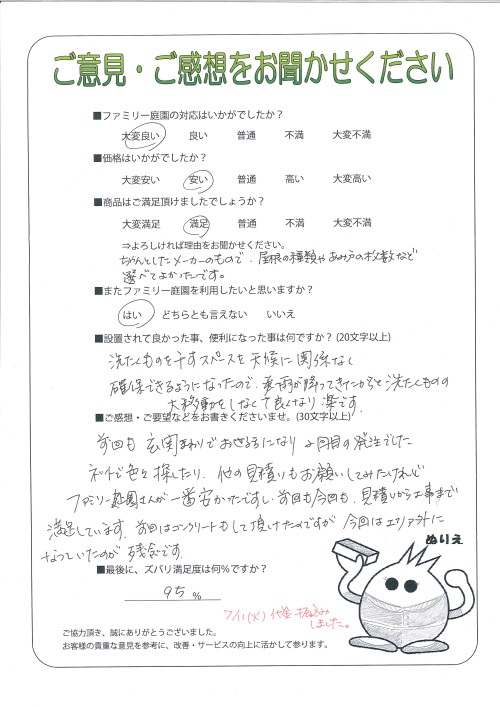 ご意見・ご感想をお聞かせください
■ファミリー庭園の対応はいかがでしたか？
大変良い 良い 普通 不満 大変不満
■価格はいかがでしたか？
大変安い 安い 普通 高い 大変高い
■商品はご満足頂けましたでしょうか？
大変満足 満足 普通 不満 大変不満
⇒よろしければ理由をお聞かせください。
ちゃんとしたメーカーのもので、屋根の種類やあみ戸の枚数など
選べてよかったです。
■またファミリー庭園を利用したいと思いますか？
はい どちらとも言えない いいえ
■設置されて良かった事、便利になった事は何ですか？(20文字以上)
洗たくものを干すスペースを天候に関係なく
確保できるようになったので、急に雨が降ってきたからと洗たくものの
大移動をしなくて良くなり楽です。
■ご感想・ご要望などをお書きくださいませ。(30文字以上)
前回も玄関まわりでお世話になり2回目の発注でした
ネットで色々探したり、他の見積りもお願いしてみたけれど
ファミリー庭園さんが一番安かったですし、前回も今回も、見積りから工事まで
満足しています。前回はコンクリートもして頂けたのですが今回はエリア外に
なっていたのが残念です。
■最後に、ズバリ満足度は何％ですか？
95 %
ぬりえ
7/11(火) 代金振込み
しました。
ご協力頂き、誠にありがとうございました。
お客様の貴重な意見を参考に、改善・サービスの向上に活かして参ります。